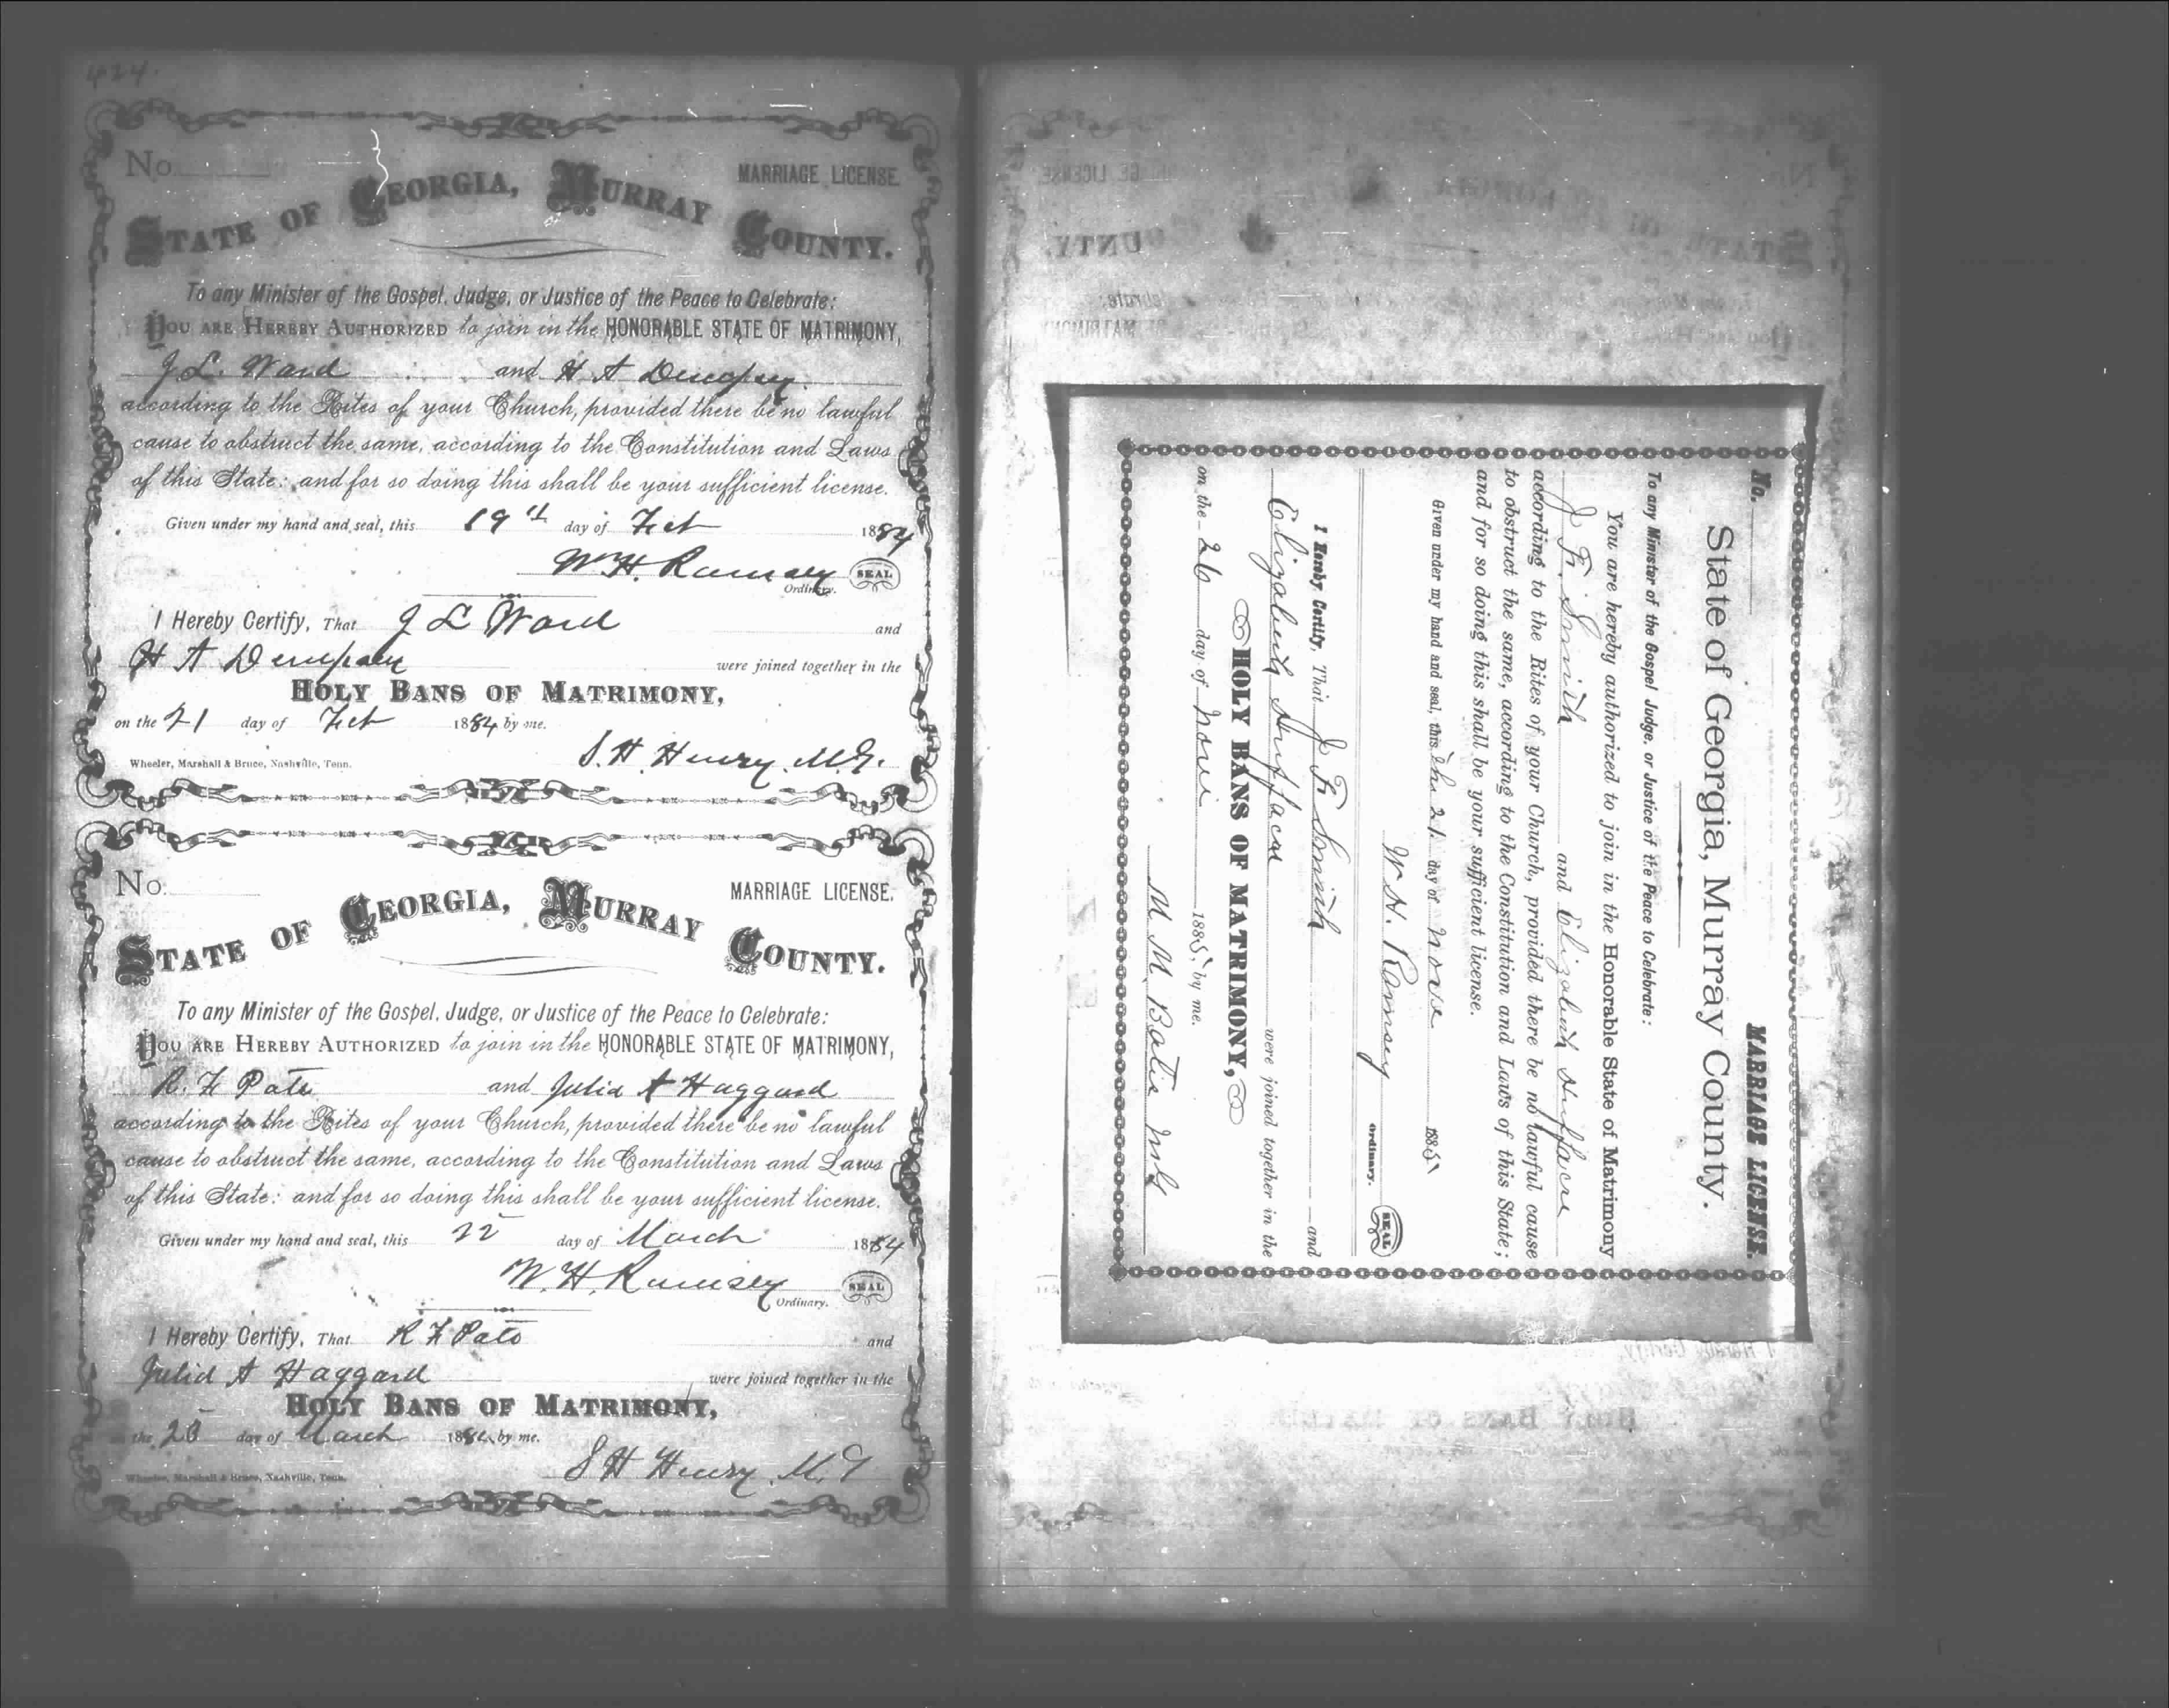 424.
No.
MARRIAGE LICENSE.
STATE OF GEORGIA, MURRAY COUNTY.
To any Minister of the Gospel, Judge, or Justice of the Peace to Celebrate:
YOU ARE HEREBY AUTHORIZED to join in the HONORABLE STATE OF MATRIMONY,
J L. Ward and H A Dempsey.
according to the Rites of your Church, provided there be no lawful
cause to obstruct the same, according to the Constitution and Laws
of this State: and for so doing this shall be your sufficient license.
Given under my hand and seal, this 19th day of Feb 1884
W. H. Ramsey SEAL
Ordinary.
I Hereby Certify, That J L Ward and
H A Dempsey were joined together in the
HOLY BANS OF MATRIMONY,
on the 21 day of Feb 1884 by me.
Wheeler, Marshall & Bruce, Nashville, Tenn. S. H. Henry. M.G.
No.
MARRIAGE LICENSE.
STATE OF GEORGIA, MURRAY COUNTY.
To any Minister of the Gospel, Judge, or Justice of the Peace to Celebrate:
YOU ARE HEREBY AUTHORIZED to join in the HONORABLE STATE OF MATRIMONY,
R. F Pate and Julia A Haggard
according to the Rites of your Church, provided there be no lawful
cause to obstruct the same, according to the Constitution and Laws
of this State: and for so doing this shall be your sufficient license.
Given under my hand and seal, this 22 day of March 1884
W. H. Ramsey SEAL
Ordinary.
I Hereby Certify, That R F Pate and
Julia A Haggard were joined together in the
HOLY BANS OF MATRIMONY,
on the 23 day of March 1884 by me.
Wheeler, Marshall & Bruce, Nashville, Tenn. S H Henry. M.G
No. MARRIAGE LICENSE.
State of Georgia, Murray County.
To any Minister of the Gospel Judge, or Justice of the Peace to Celebrate:
You are hereby authorized to join in the Honorable State of Matrimony
J F. Smith and Elizabeth Huffacre
according to the Rites of your Church, provided there be no lawful cause
to obstruct the same, according to the Constitution and Laws of this State;
and for so doing this shall be your sufficient license.
Given under my hand and seal, this the 21. day of Nove 1885
W. H. Ramsey
Ordinary. SEAL
I Hereby Certify, That J F Smith and
Elizabeth Huffacre were joined together in the
HOLY BANS OF MATRIMONY,
on the 26 day of Nove 1885 by me.
M M. Bates